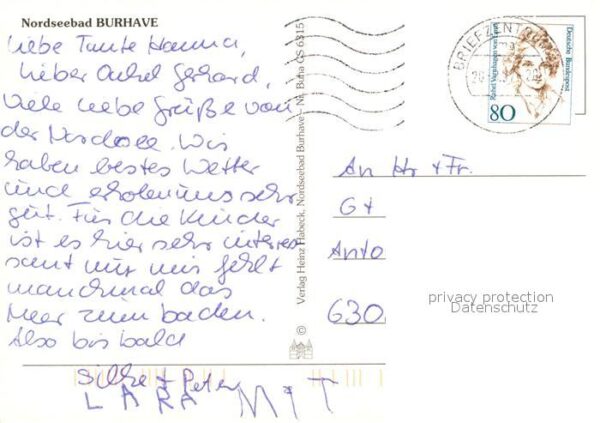 Nordseebad BURHAVE
Liebe Tante Hanna,
Lieber Onkel Gerhard,
Viele liebe Grüße von
der Nordsee. Wir
haben bestes Wetter
und erholen uns sehr
gut. Für die Kinder
ist es hier sehr interes
sant nur mir fehlt
manchmal das
Meer zum baden.
Also bis bald
Silke + Peter
LARA MIT
Verlag Heinz Habeck, Nordseebad Burhave – Nr. Buha CS 6315
©
BRIEFZENTRUM
Deutsche Bundespost
Rahel Varnhagen von Ense
80
An Hr + Fr.
G+
Anto
630
privacy protection
Datenschutz